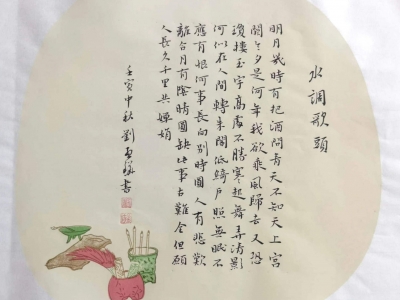 水調歌頭
明月幾時有把酒問青天不知天上宮
闕今夕是何年我欲乘風歸去又恐
瓊樓玉宇高處不勝寒起舞弄清影
何似在人間轉朱閣低綺戶照無眠不
應有恨何事長向別時圓人有悲歡
離合月有陰晴圓缺此事古難全但願
人長久千里共嬋娟
壬寅中秋劉書